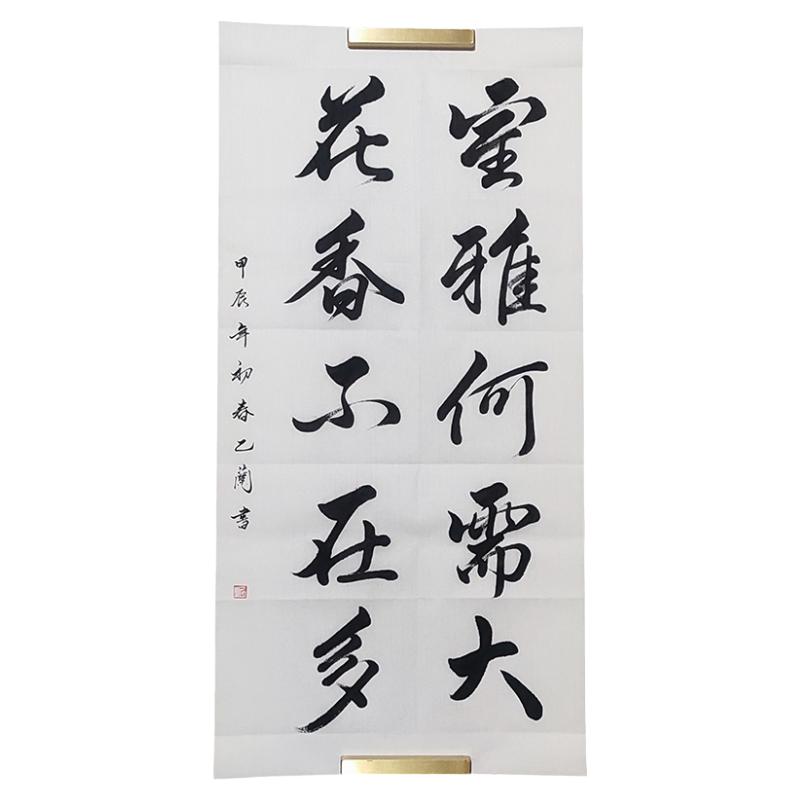 室雅何需大
花香不在多
甲辰年初春乙蘭书